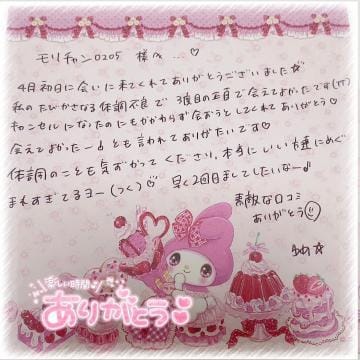 モリチャン0205 様へ...♡
4月初日に会いに来てくれてありがとうございました☆
私のたびかさなる体調不良で 3度目の正直で会えてよかったです(???)
キャンセルになったのにもかかわらず会おうとしてくれてありがとう♡
会えてよかったー♪とも言われてありがたいです♡
体調のことも気づかってくださり、本当にいいお客様にめぐ
まれすぎてるヨー(つくし)♡ 早く2回目ましてしたいなー♪
素敵な口コミ
ありがとう☺
楽しい時間を
ありがとう